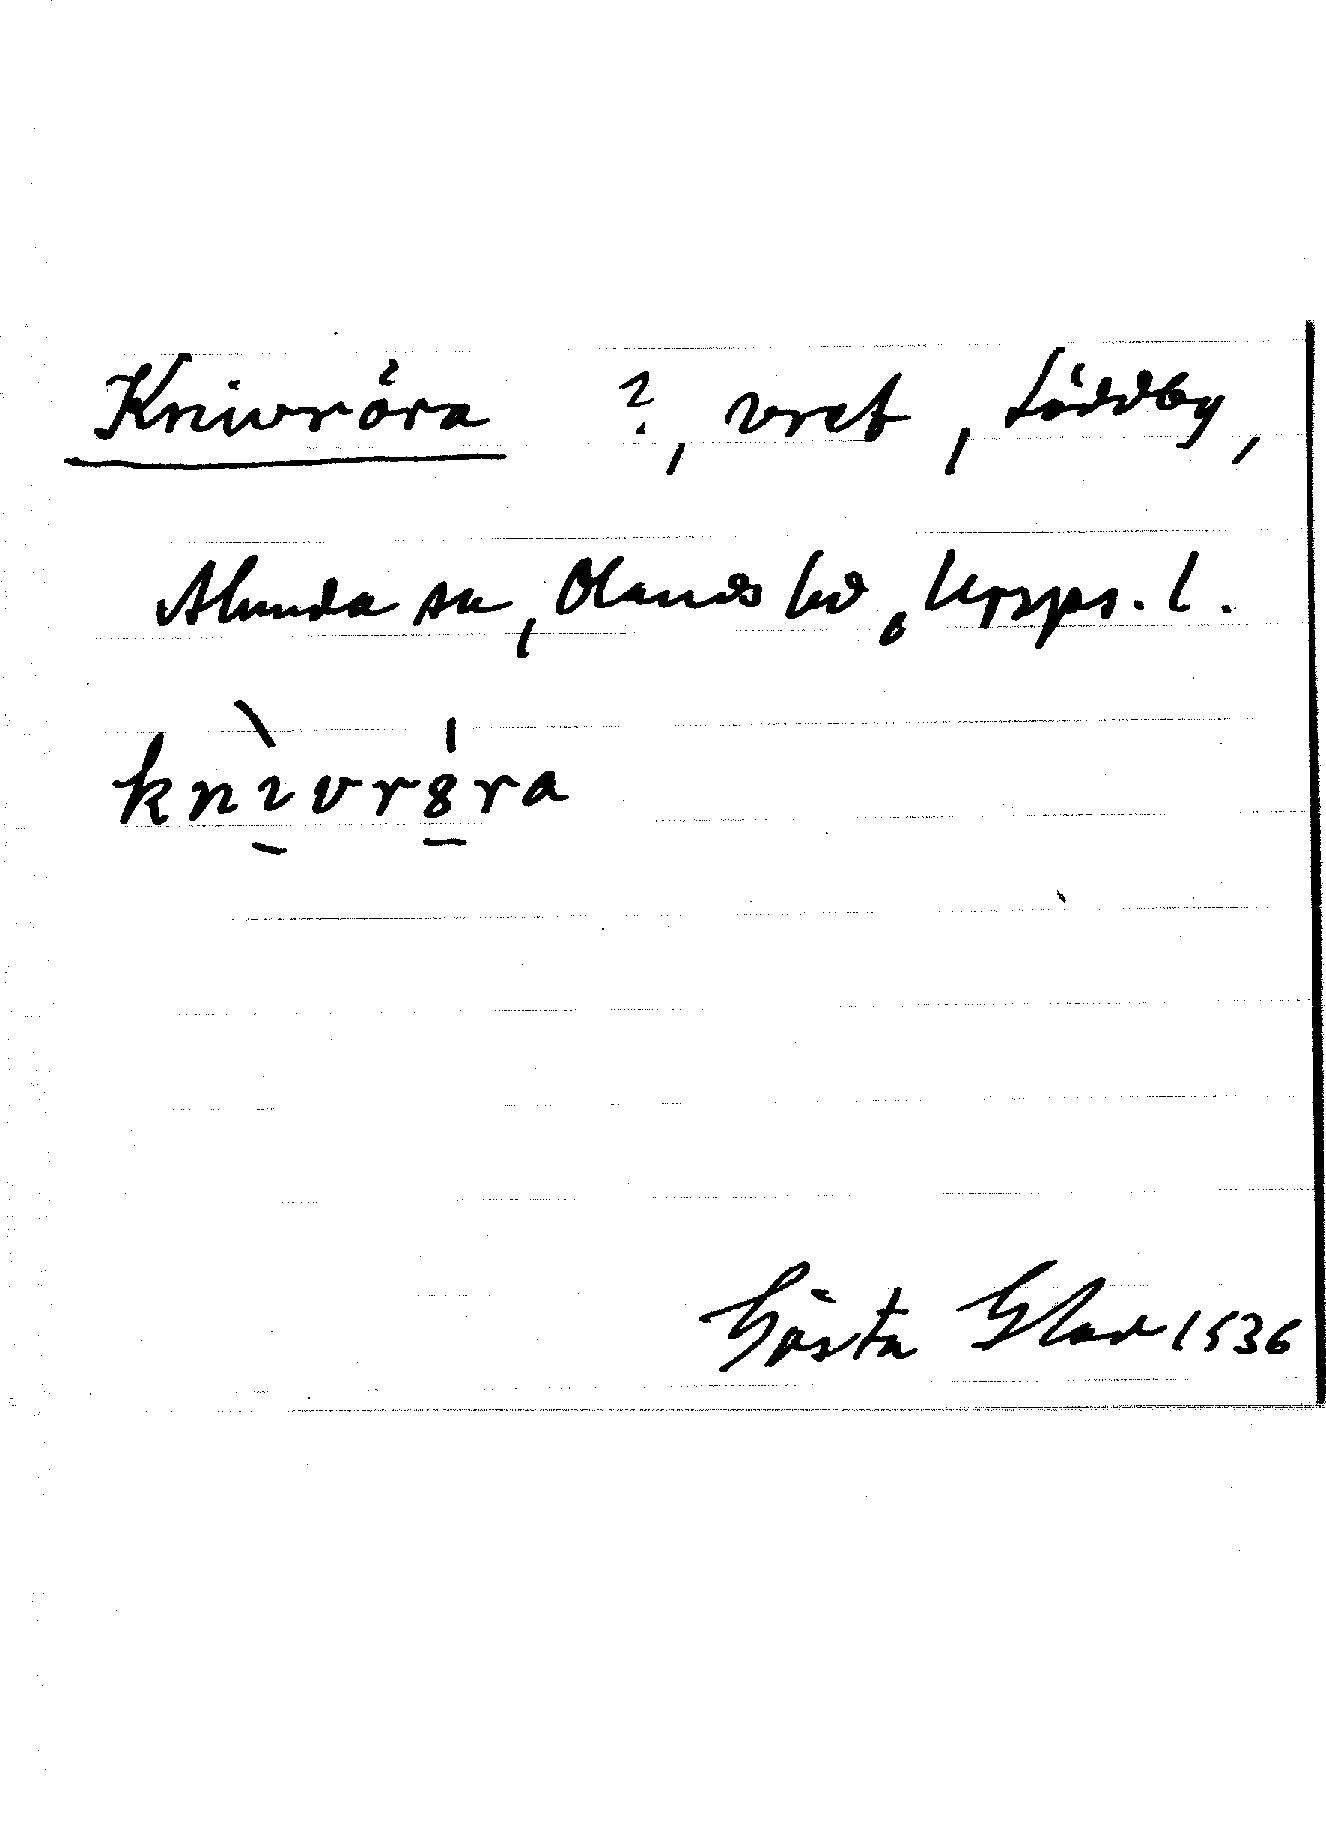 Knivröra ?, vret, Löddby,
Alunda sn, Olands hd, Upps. l.
knivröra
Gösta Glad 1936